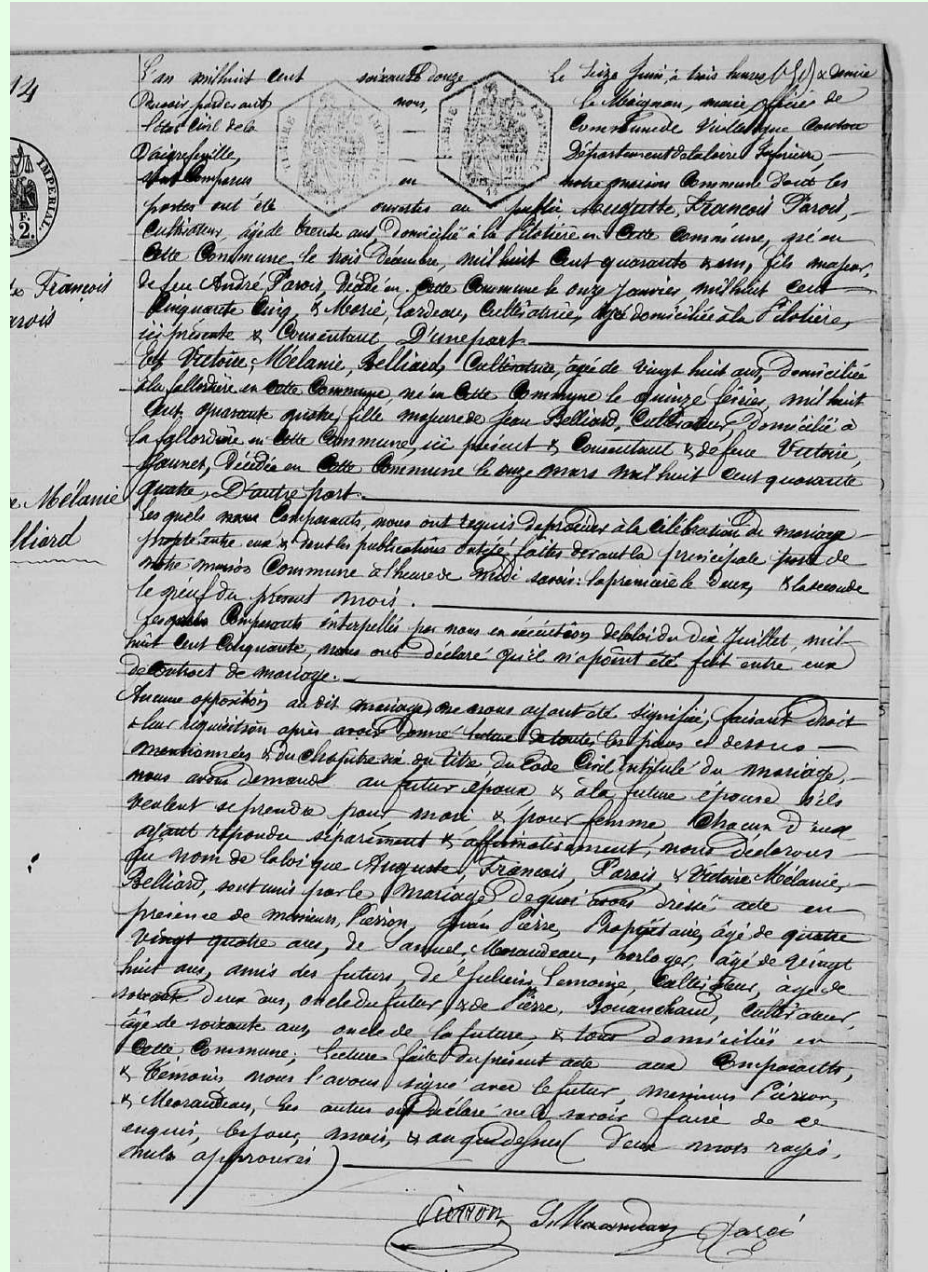 14
te François
arois
e Mélanie
lliard
L'an mil huit cent soixante douze Le Seize Juin, à trois heures & demie
nous, le Meignan, maire officier de
l'état civil de la Commune de Vieillevigne Canton
D'aigrefeuille, Département de la loire Inférieure,
sont Comparus en notre maison Commune dont les
portes ont été ouvertes au public Auguste, François Parois,
Cultivateur, âgé de trente ans, domicilié à la Filotière en Cette Commune, né en
Cette Commune, le trois Décembre, mil huit Cent quarante & un, fils majeur
de feu André Parois, Décédé en Cette Commune le onze Janvier mil huit cent
Cinquante Cinq, & Marie, Lardeau, Cultivatrice, domiciliée à la Filotière,
ici présente & Consentante, D'une part.
Et, Victoire, Mélanie, Belliard, Cultivatrice, âgée de vingt huit ans, Domiciliée
à la fallordière en Cette Commune née en Cette Commune le quinze février, mil huit
Cent quarante quatre, fille majeure de Jean Belliard, Cultivateur, Domicilié à
la fallordière en Cette Commune, ici présent & Consentant & de feue Victoire,
Jaunet, Décédée en Cette Commune le onze mars mil huit cent quarante
quatre, D'autre part.
Lesquels Comparants, nous ont requis de procéder à la Célébration du mariage
projeté entre eux & dont les publications ont été faites devant la principale porte de
notre maison Commune à l'heure de midi savoir: la première le Deux, & la seconde
le neuf du présent mois.
Lesquels Comparants interpellés par nous en exécution de la loi du Dix Juillet, mil
huit Cent Cinquante, nous ont déclaré qu'il n'a point été fait entre eux
de Contrat de mariage.
Aucune opposition au dit mariage, ne nous ayant été signifiée, faisant droit
à leur réquisition après avoir donné lecture de toutes les pièces ci dessus
mentionnées & du chapitre six du titre du Code Civil intitulé du mariage,
nous avons demandé au futur époux & à la future épouse s'ils
veulent se prendre pour mari & pour femme, Chacun d'eux
ayant répondu séparément & affirmativement, nous déclarons
au nom de la loi que Auguste, François, Parois, & Victoire Mélanie,
Belliard, sont unis par le mariage De quoi avons dressé acte en
présence de messieurs, Pierron, Jean Pierre, Propriétaire, âgé de quatre
vingt quatre ans, de Samuel, Moraudeau, horloger, âgé de vingt
huit ans, amis des futurs, de Julien, Lemoine, Cultivateur, âgé de
soixante deux ans, oncle du futur & de Pierre, Bouanchaud, Cultivateur,
âgé de soixante ans, oncle de la future, & tous domiciliés en
Cette Commune; lecture faite du présent acte aux Comparants,
& témoins, nous l'avons signé avec le futur, messieurs Pierron,
& Moraudeau, les autres ont Déclaré ne savoir faire de ce
enquis, les jour, mois, & an que dessus (Deux mots rayés,
nuls approuvés)
Pierron S. Moraudeau Parois